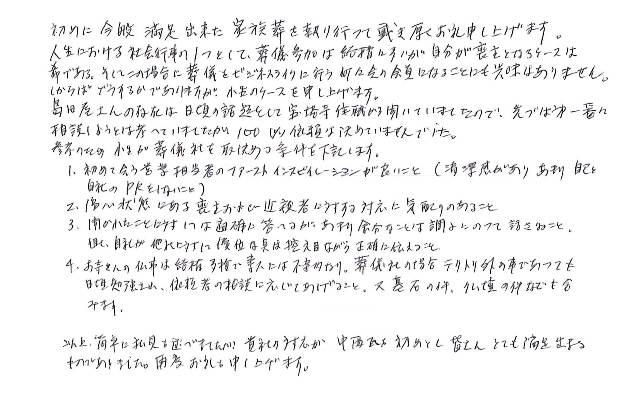 初めに 今般 満足出来た 家族葬を執り行って戴き厚くお礼申し上げます。
人生における社会行事の1つとして、葬儀参加は結構多いが自分が喪主となるケースは
希である。そしてこの場合に葬儀をビジネスライクに行う 何々会の会員になることにも興味はありません。
しからばどうするかでありますが、小生のケースを申し上げます。
島田屋さんの存在は日頃の話題として宝塔寺住職から聞いていましたので、先づは第一番に
相談しようとは考へていましたが 100% 依頼は決めていませんでした。
参考のため 小生が葬儀社を取決める条件を下記します。
1. 初めて会う営業担当者のファーストインスピレーションが良いこと (清潔感があり あまり自己と
自社のPRをしないこと)
2. 傷心状態にある喪主および近親者に対する対応に気配りのあること
3. 聞かれたことに対しては適確に答へるが、あまり余分なことは調子にのって話さぬこと、
但し、自社が他社に対する優位な点は控え目ながら正確に伝えること
4. お寺さんの仏事は結構多様で素人には不案内なり。葬儀社の場合テリトリ外の事であっても
日頃勉強され、依頼者の相談に応じてあげること。又墓石の件、仏壇の件なども含
みます。
以上、簡単に私見を述べましたが 貴社の対応が 中西 初めとし 皆さん とても満足出来る
ものでありました。再度お礼を申し上げます。